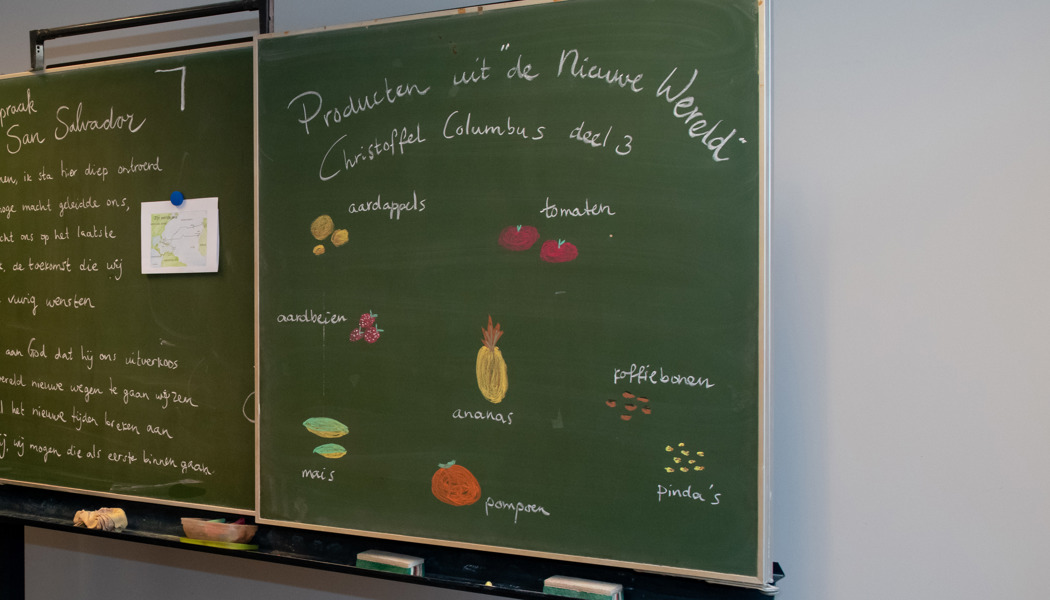 praak
San Salvador
7
ik sta hier diep ontroerd
macht geleidde ons,
ons op het laatste
de toekomst die wij
vurig wensten
aan God dat hij ons uitverkoos
nieuwe wegen te gaan wijzen
het nieuwe tijden breken aan
wij mogen die als eerste binnen gaan.
Producten uit "de Nieuwe Wereld"
Christoffel Columbus deel 3
aardappels
tomaten
aardbeien
koffiebonen
ananas
mais
pinda's
pompoen